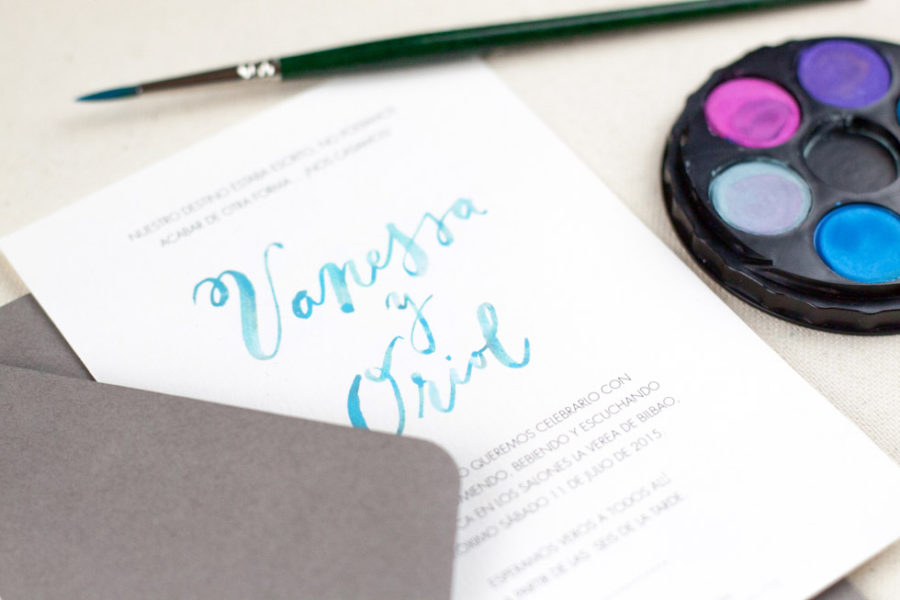 NUESTRO DESTINO ESTABA ESCRITO, NO PODÍAMOS
ACABAR DE OTRA FORMA... ¡NOS CASAMOS!
Vanessa
y
Oriol
O QUEREMOS CELEBRARLO CON
MIENDO, BEBIENDO Y ESCUCHANDO
CA EN LOS SALONES LA VEREA DE BILBAO,
ÓXIMO SÁBADO 11 DE JULIO DE 2015.
ESPERAMOS VEROS A TODOS ALLÍ
A PARTIR DE LAS SEIS DE LA TARDE